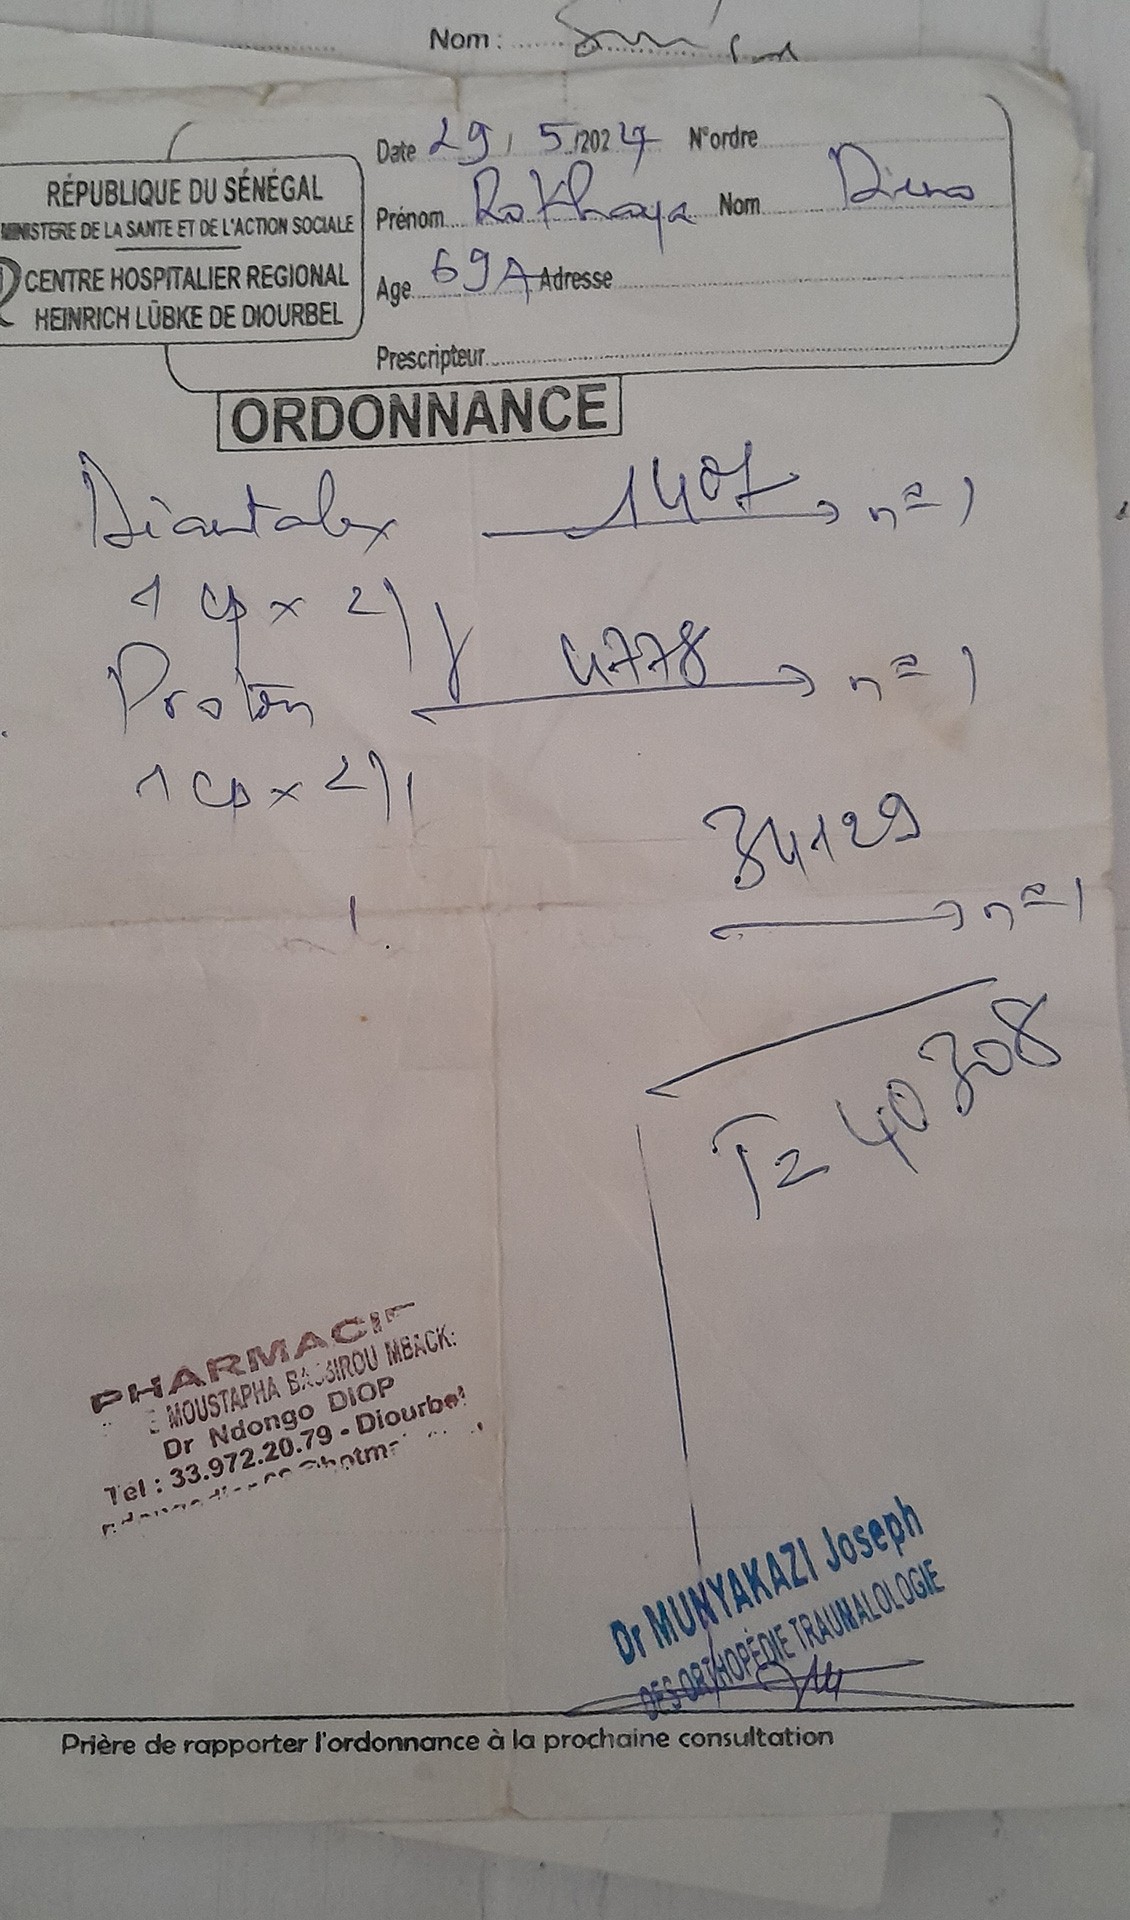 Nom :
Date 29 / 5 /2024 N°ordre
RÉPUBLIQUE DU SÉNÉGAL
MINISTERE DE LA SANTE ET DE L'ACTION SOCIALE
CENTRE HOSPITALIER REGIONAL
HEINRICH LÜBKE DE DIOURBEL
Prénom Rokhaya Nom
Age 69 A Adresse
Prescripteur
ORDONNANCE
1401 n = 1
1 cp x 2/j
4778 n = 1
1 cp x 2/j
34129
n = 1
T = 40308
PHARMACIE
MOUSTAPHA BASSIROU MBACK
Dr Ndongo DIOP
Tel : 33.972.20.79 - Diourbel
Dr MUNYAKAZI Joseph
DES ORTHOPÉDIE TRAUMALOLOGIE
Prière de rapporter l'ordonnance à la prochaine consultation